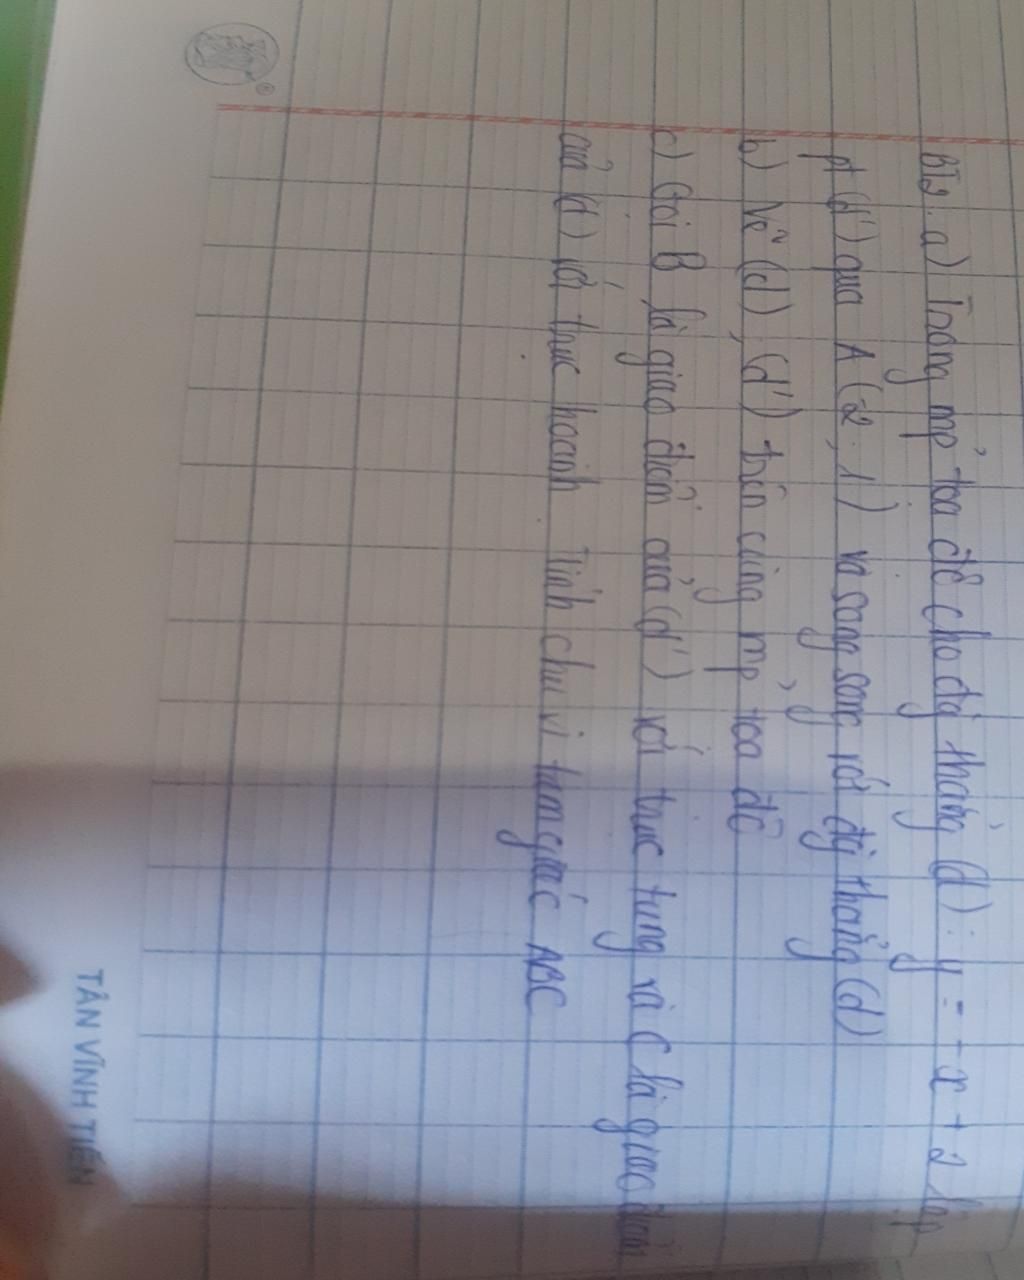 BT2. a) Trong mp tọa độ cho đg thẳng (d): y = -x + 2 lập
pt (d') qua A (2; 1) và song song với đg thẳng (d)
b) Vẽ (d), (d') trên cùng mp tọa độ
c) Gọi B là giao điểm của (d') với trục tung và C là giao điểm
của (d) với trục hoành. Tính chu vi tam giác ABC
TÂN VĨNH TIẾN
®